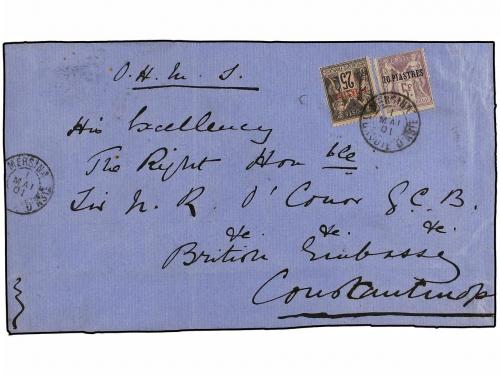 O. H. M. S.
25
20 PIASTRES
MERSINA
MAI
01
TURQUIE D'ASIE
His Excellency
The Right Hon ble
Sir N. R O'Conor G. C. B.
MERSINA
1
MAI
01
D'ASIE
&c &c &c
British Embassy
Constantinople